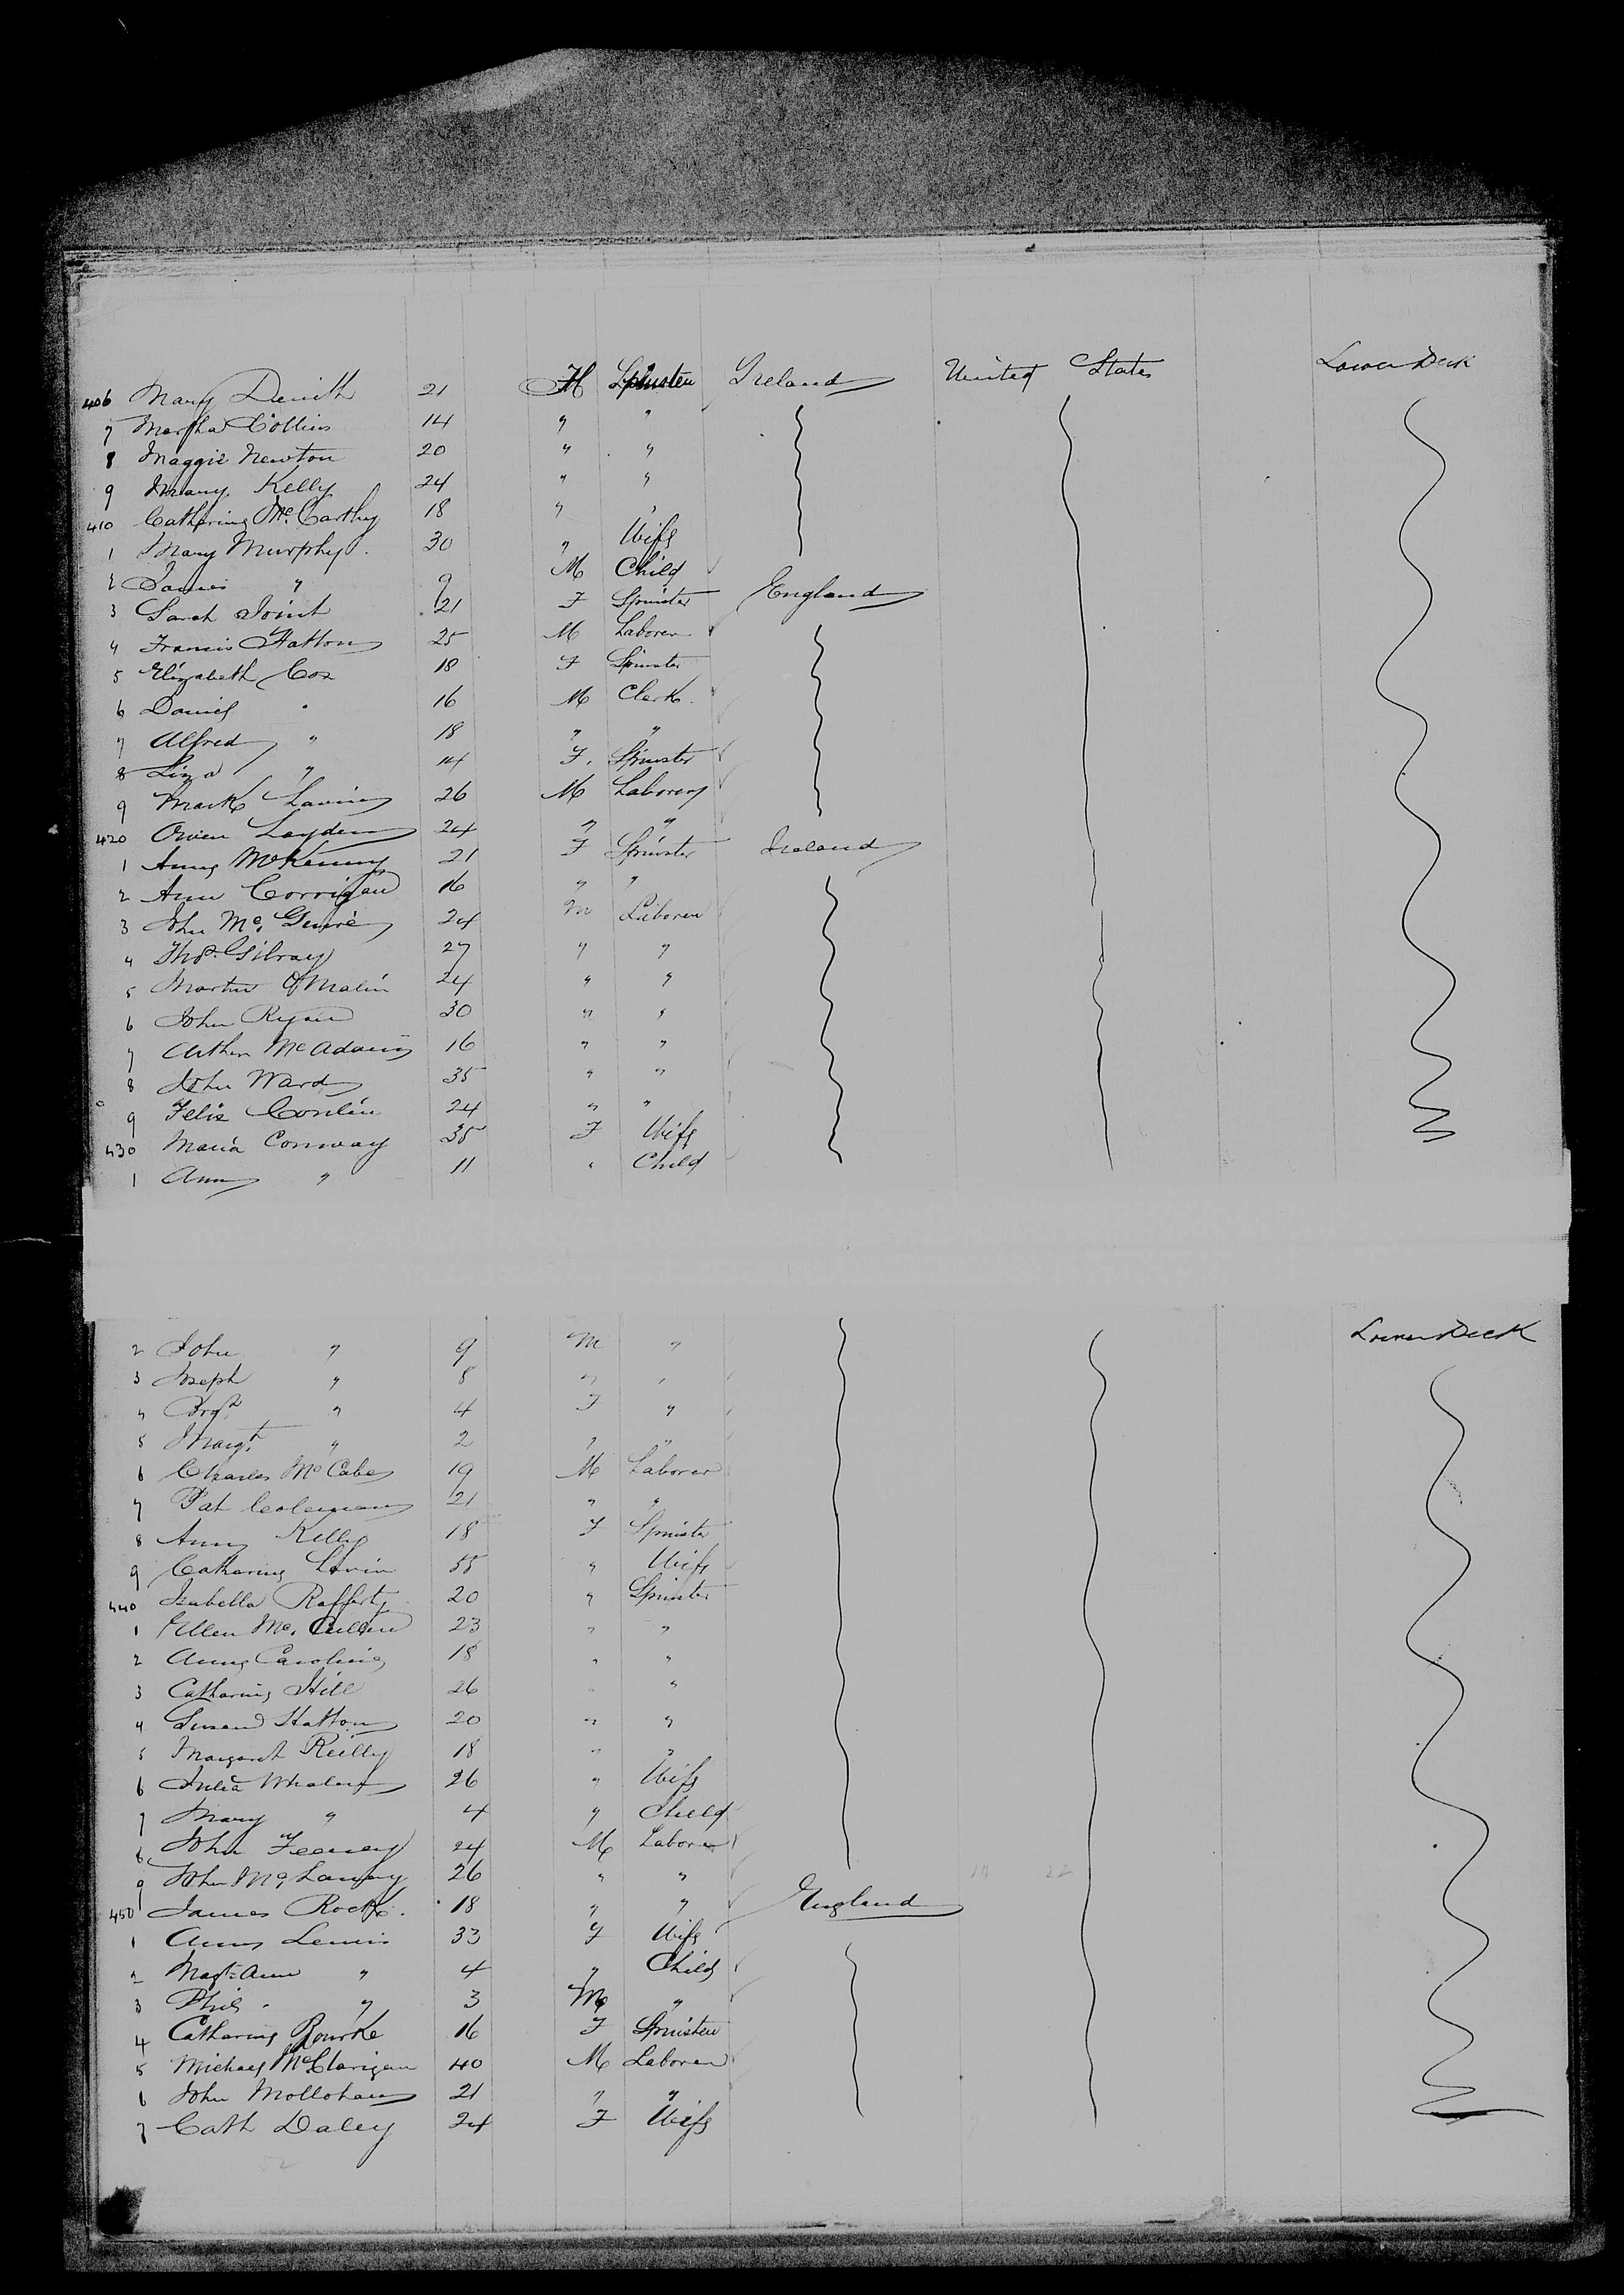 406 Mary Devitt 21 F Spinster Ireland United States Lower Deck
7 Martha Collins 14 " "
8 Maggie Newton 20 " "
9 Mary Kelly 24 " "
410 Catharine McCarthy 18 " "
1 Mary Murphy 30 " Wife
2 James " 9 M Child
3 Sarah Joint 21 F Spinster England
4 Francis Hatton 25 M Laborer
5 Elizabeth Cox 18 F Spinster
6 Daniel " 16 M Clerk
7 Alfred " 18 " "
8 Liza " 14 F. Spinster
9 Mark Lavin 26 M Laborer
420 Owen Layden 24 " "
1 Anne McKenny 21 F Spinster Ireland
2 Ann Corrigan 16 " "
3 John Mc. Guire 24 M Laborer
4 Thos. Gilray 27 " "
5 Martin O'Malin 24 " "
6 John Ryan 30 " "
7 Arthur McAdam 16 " "
8 John Ward 35 " "
9 Felix Conlin 24 " "
430 Maria Conway 35 F Wife
1 Ann " 11 " Child
2 John " 9 M " Lower Deck
3 Joseph " 8 " "
4 Brgt " 4 F "
5 Margt " 2 " "
6 Charles McCabe 19 M Laborer
7 Pat Coleman 21 " "
8 Anny Kelly 18 F Spinster
9 Catharine Lavin 55 " Wife
440 Isabella Rafferty 20 " Spinster
1 Ellen Mc. Cullen 23 " "
2 Anne Caroline 18 " "
3 Catharine Hill 26 " "
4 Susan Hatton 20 " "
5 Margaret Reilly 18 " "
6 Julia Whalen 26 " Wife
7 Mary " 4 " Child
8 John Feeney 24 M Laborer
9 John 26 " "
450 James Rock. 18 " " England
1 Ann Lewis 33 F Wife
2 Magt Ann " 4 " Child
3 Phil " 3 M "
4 Catharine Rourke 16 F Spinster
5 Michael McClarigan 40 M Laborer
6 John Mollohan 21 " "
7 Cath Daley 24 F Wife